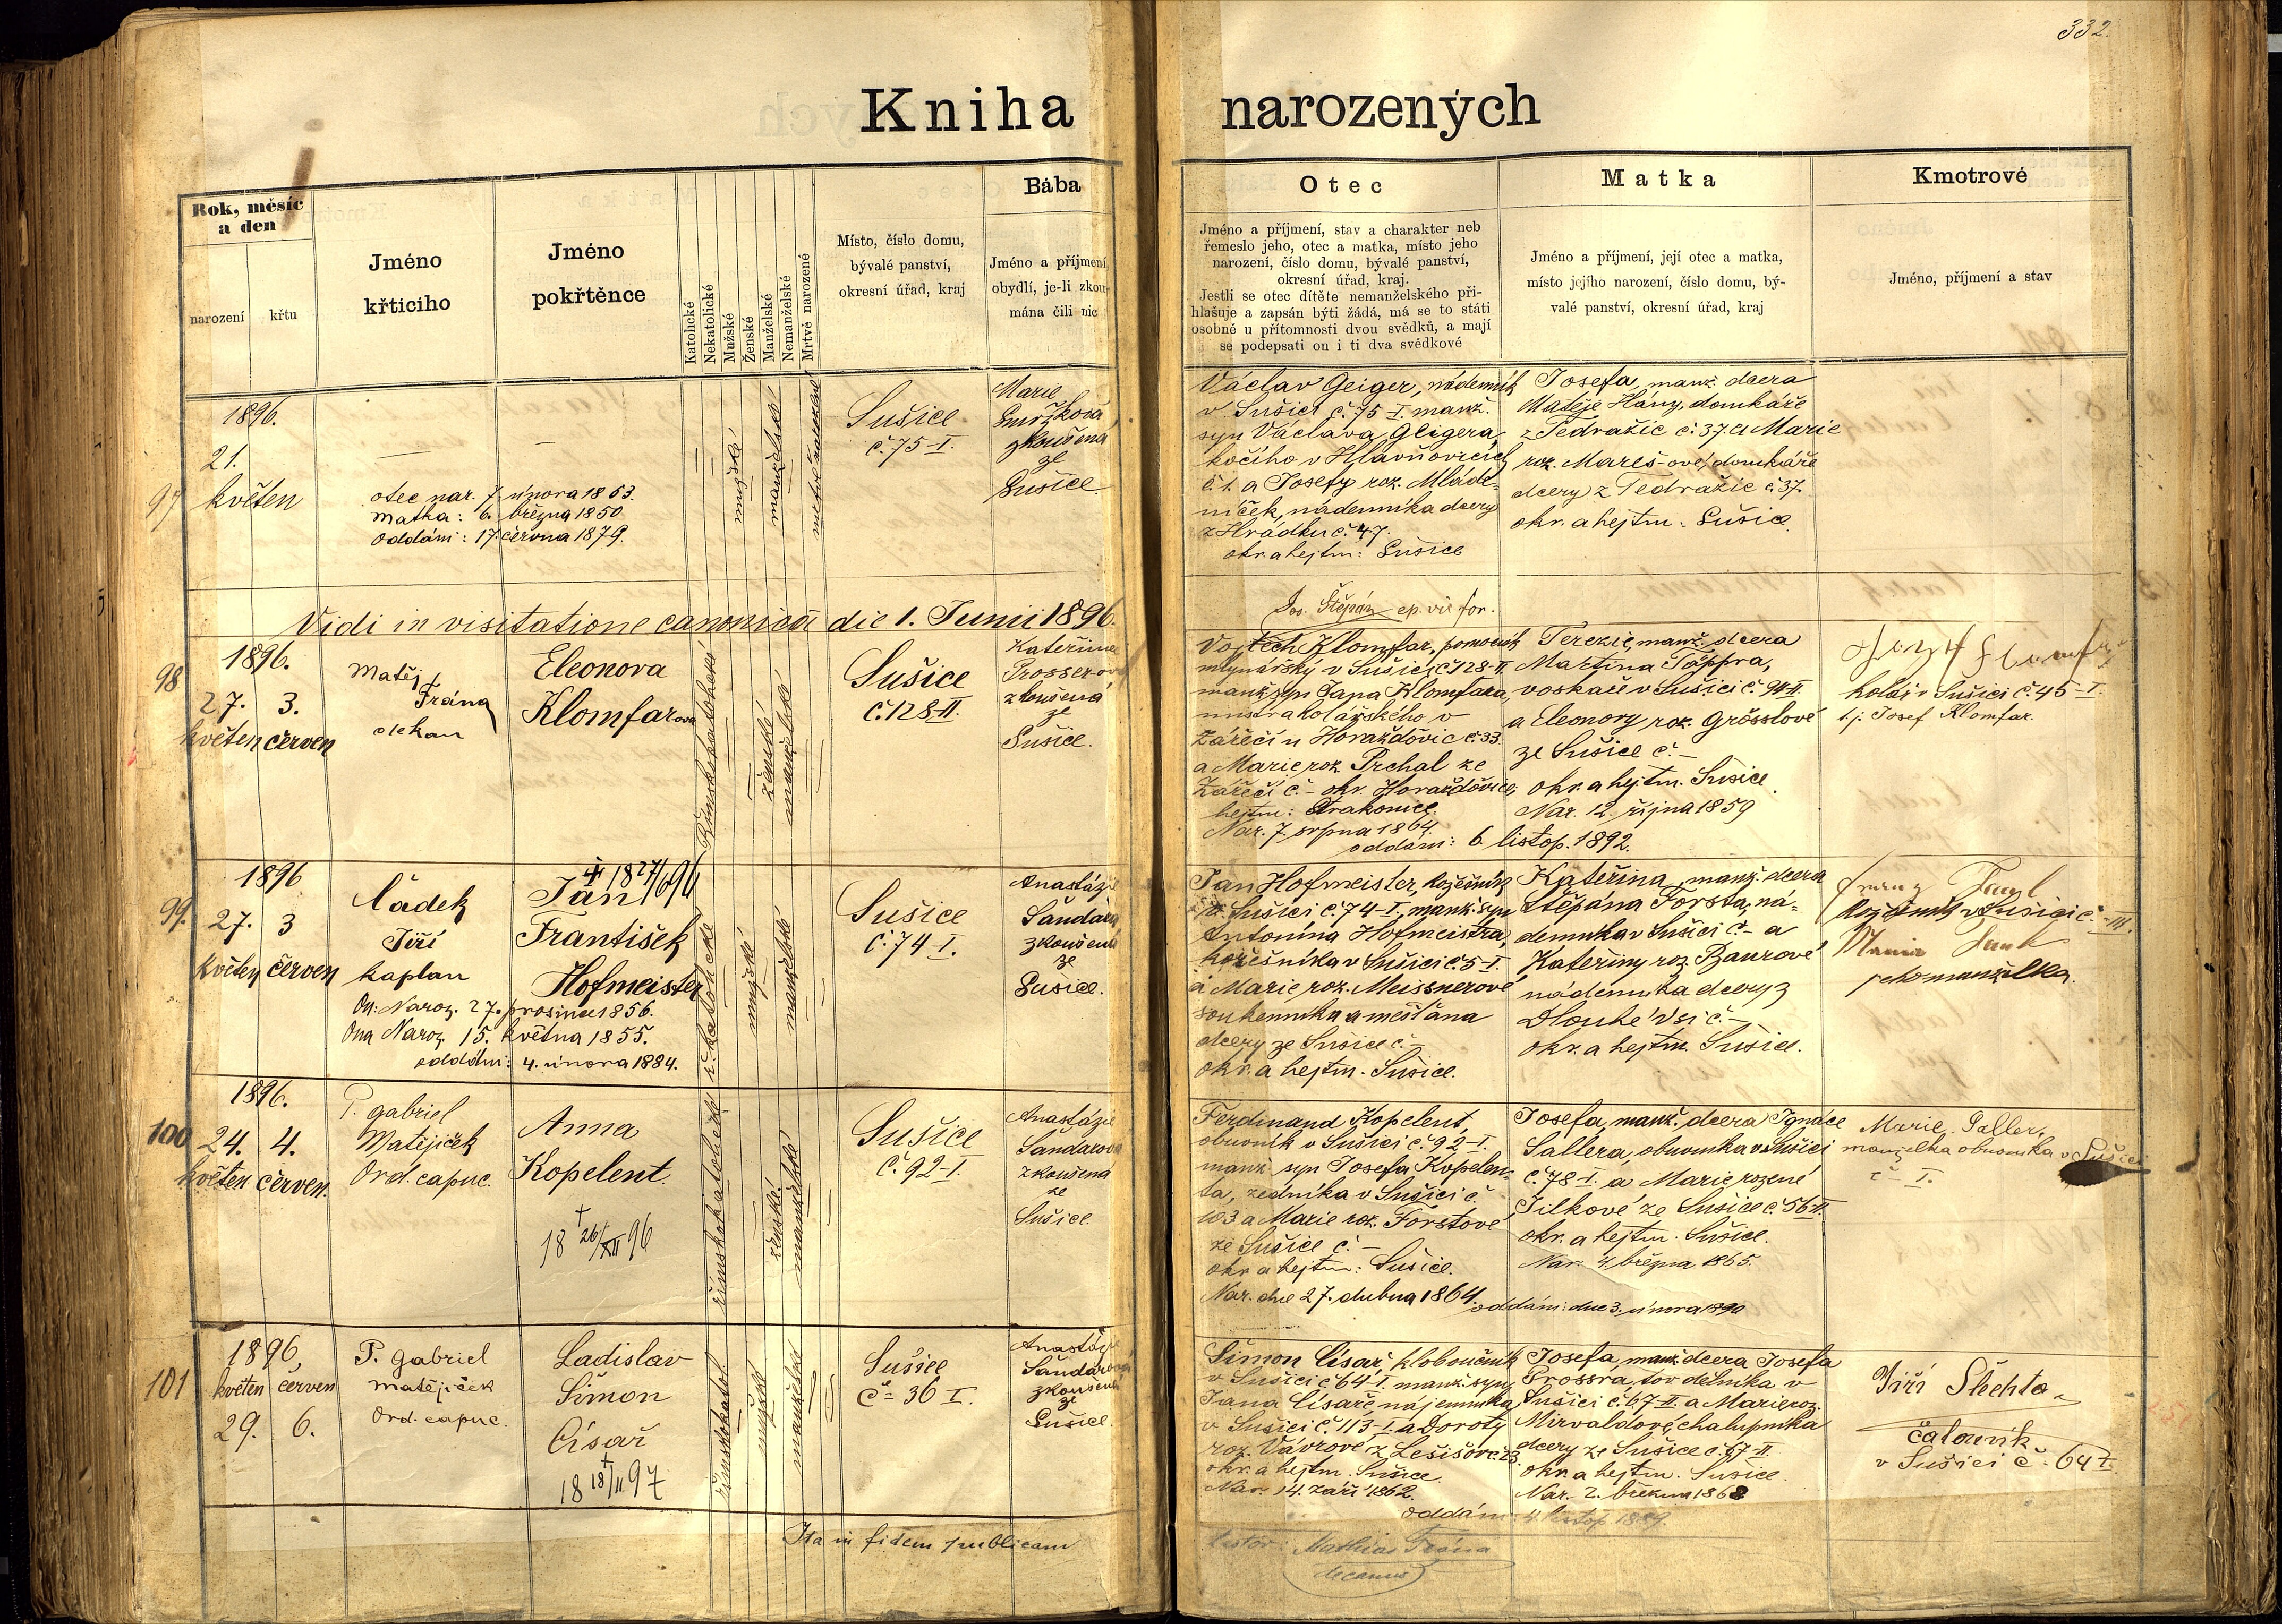 332.
Kniha narozených
Rok, měsíc
a den
narození
křtu
Jméno
křticího
Jméno
pokřtěnce
Katolické
Nekatolické
Mužské
Ženské
Manželské
Nemanželské
Mrtvě narozené
Místo, číslo domu,
bývalé panství,
okresní úřad, kraj
Bába
Jméno a příjmení,
obydlí, je-li zkou-
mána čili nic
Otec
Jméno a příjmení, stav a charakter neb
řemeslo jeho, otec a matka, místo jeho
narození, číslo domu, bývalé panství,
okresní úřad, kraj.
Jestli se otec dítěte nemanželského při-
hlašuje a zapsán býti žádá, má se to státi
osobně u přítomnosti dvou svědků, a mají
se podepsati on i ti dva svědkové
Matka
Jméno a příjmení, její otec a matka,
místo jejího narození, číslo domu, bý-
valé panství, okresní úřad, kraj
Kmotrové
Jméno, příjmení a stav
97
1896.
21.
květen
otec nar. 7. února 1853.
matka: 6. března 1850
Oddáni: 17. června 1879.
mužské
manželské
Sušice
č. 75-I.
Marie
zkoušená
ze
Sušice.
Václav Geiger, nádenník
v Sušici č. 75-I. manž.
syn Václava Geigera,
kočího v Hlavňovicích
č. 1. a Josefy roz. Mláde-
níček, nádenníka dcery
z Hrádku č. 47.
okr. a hejtm: Sušice
Josefa, manž. dcera
Matěje Hány, domkáře
z Tedražic č. 37. a Marie
roz. Mareš-ové, domkáře
dcery z Tedražic č. 37.
okr. a hejtm: Sušice.
Vidi in visitatione canonica die 1. Junii 1896.
Jos. Štěpán ep. vic. for.
98
1896.
27. 3.
květen červen
Matěj
Frána
děkan
Eleonora
Klomfarova
Římskokatolické
ženské
manželské
Sušice
č. 128-II.
Kateřina
Prosserova
zkoušená
ze
Sušice.
Vojtěch Klomfar, pomocník
mlynářský v Sušici č. 128-II.
manž. syn Jana Klomfara,
mistra kolářského v
Zářečí u Horažďovic č. 33
a Marie roz. Prchal ze
Zářečí č. - okr. Horažďovice,
hejtm: Strakonice.
Nar. 7. srpna 1864.
Terezie, manž. dcera
Martina Töppra,
voskaře v Sušici č. 94-II.
a Eleonory roz. Grösslové
ze Sušice č. -
okr. a hejtm. Sušice.
Nar. 12. října 1859
oddáni: 6. listop. 1892.
kolář v Sušici č. 45-I.
t.j. Josef Klomfar.
99.
1896
27. 3
květen červen
Čádek
Jiří
kaplan
† 18 27/6 96
Jan
František
Hofmeister
On: Naroz. 27. prosince 1856.
Ona Naroz. 15. května 1855.
oddáni: 4. února 1884.
ř. katolické
mužské
manželské
Sušice
č. 74-I.
Anastázie
Šandarova
zkoušená
ze
Sušice.
Jan Hofmeister, kožešník
v Sušici č. 74-I., manž. syn
Antonína Hofmeistra,
kožešníka v Sušici č. 5-I.
a Marie roz. Meissnerové
soukenníka a měšťana
dcery ze Sušice č. -
okr. a hejtm. Sušice.
Kateřina, manž. dcera
Štěpána Forsta, ná-
denníka v Sušici č. - a
Kateřiny roz. Baurové
nádenníka dcery z
Dlouhé Vsi č. -
okr. a hejtm. Sušice.
kožešník v Sušici č. -III.
jeho manželka.
100
1896.
24. 4.
květen červen.
P. Gabriel
Matějíček
Ord. capuc.
Anna
Kopelent.
† 18 26/XII 96
římskokatolické
ženské.
manželské
Sušice
č. 92-I.
Anastázie
Šandarova
zkoušená
ze
Sušice.
Ferdinand Kopelent,
obuvník v Sušici č. 92-I.
manž. syn Josefa Kopelen-
ta, zedníka v Sušici č.
103 a Marie roz. Forstové
ze Sušice č. -
okr. a hejtm: Sušice.
Nar. dne 27. dubna 1864.
Josefa, manž. dcera Ignáce
Sallera, obuvníka v Sušici
č. 78-I. a Marie rozené
Jilkové ze Sušice č. 56-II.
okr. a hejtm. Sušice.
Nar. 4. března 1865.
oddáni: dne 3. února 1890
Marie Saller,
manželka obuvníka v Sušici
č - I.
101
1896,
květen červen
29. 6.
P. Gabriel
Matějíček
Ord. capuc.
Ladislav
Šimon
Císař
† 18 18/II 97
římskokatol.
mužské
manželské
Sušice
č= 36 I.
Anastázie
Šandarova
zkoušená
ze
Sušice.
Šimon Císař, kloboučník
v Sušici č. 64-I. manž. syn
Jana Císaře, nájemníka
v Sušici č. 113-I. a Doroty
roz. Vávrové z Lešišov č. 23.
okr. a hejtm. Sušice.
Nar. 14. září 1862.
Josefa, manž. dcera Josefa
Prossra, tov. dělníka v
Sušici č. 67-II. a Marie roz.
Mirvaldové, chalupníka
dcery ze Sušice č. 67-II.
okr. a hejtm. Sušice.
Nar. 2. března 1868
oddáni: 4. listop. 1889.
Jiří Šlechta
čalouník
v Sušici č. 64 I.
Ita in fidem publicam
testor: Mathias Frána
decanus